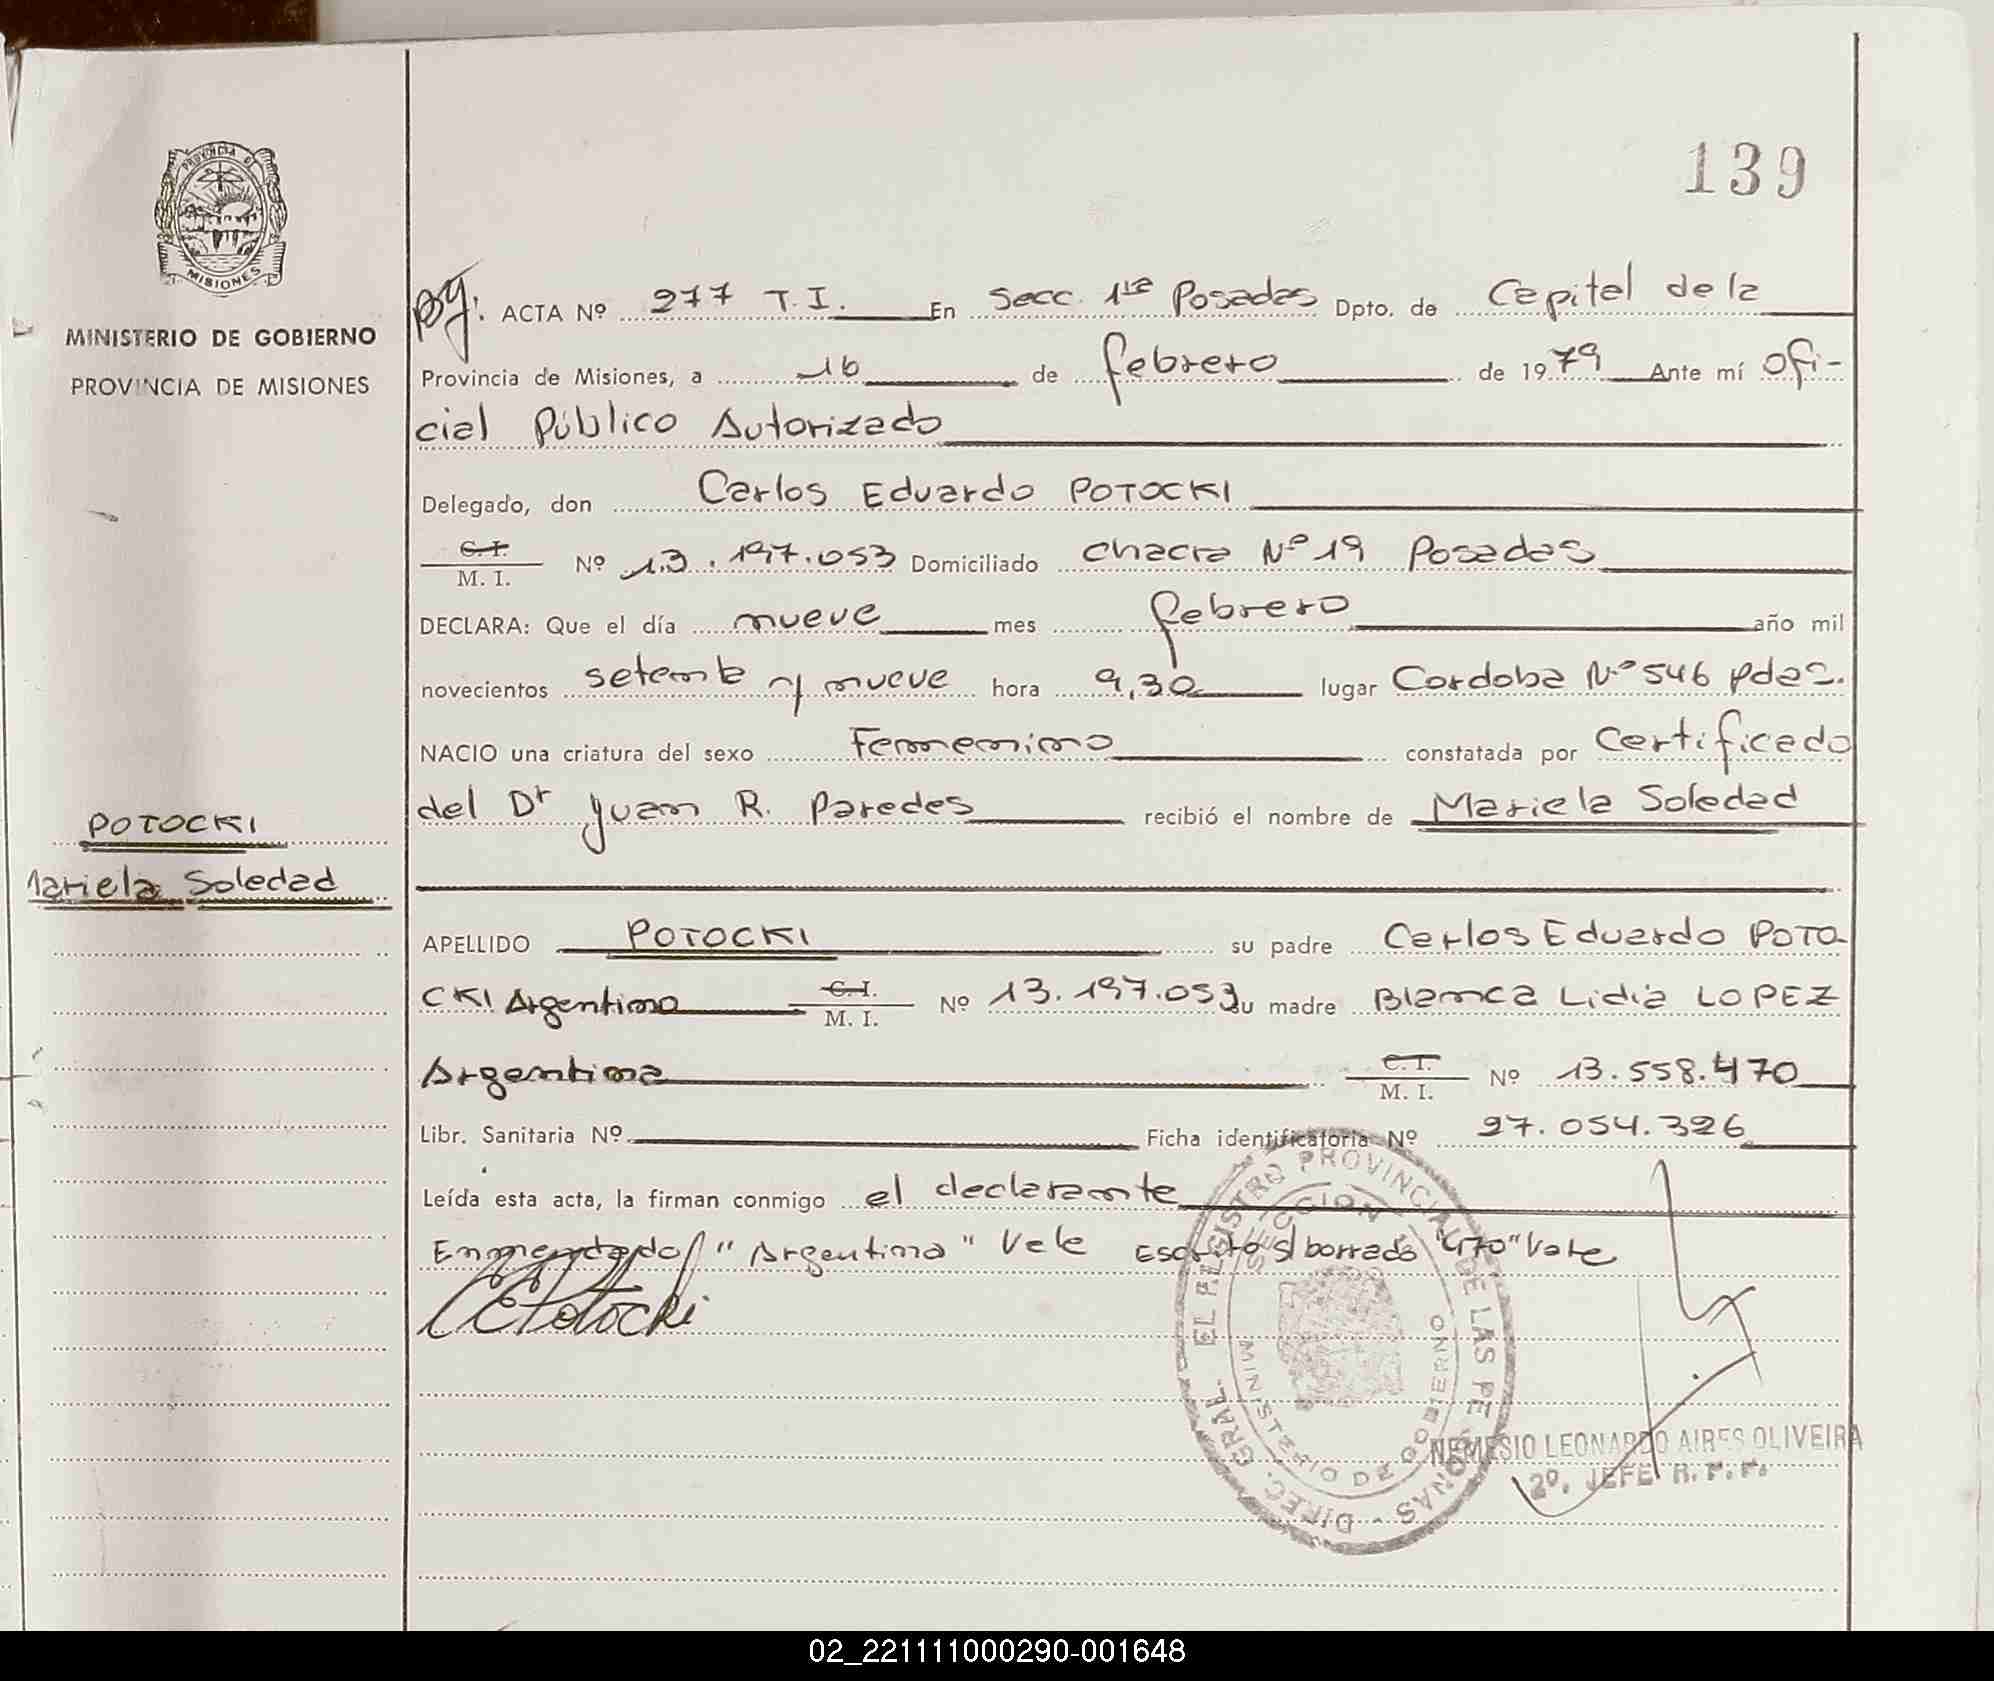 139
PROVINCIA DE
MISIONES
MINISTERIO DE GOBIERNO
PROVINCIA DE MISIONES
ACTA Nº 277 T.I. En Secc. 1ra Posadas Dpto. de Capital de la
Provincia de Misiones, a 16 de febrero de 1979 Ante mí ofi-
cial Público Autorizado
Delegado, don Carlos Eduardo POTOCKI
C.I.
M. I. Nº 13.197.053 Domiciliado chacra Nº 19 Posadas
DECLARA: Que el día nueve mes febrero año mil
novecientos setenta y nueve hora 9,30 lugar Cordoba Nº 546 pdas.
NACIO una criatura del sexo Femenino constatada por Certificado
del Dr Juan R. Paredes recibió el nombre de Mariela Soledad
POTOCKI
Mariela Soledad
APELLIDO POTOCKI su padre Carlos Eduardo POTO-
CKI Argentino C.I. M. I. Nº 13.197.053 su madre Blanca Lidia LOPEZ
Argentina C.I. M. I. Nº 13.558.470
Libr. Sanitaria Nº Ficha identificatoria Nº 27.054.326
Leída esta acta, la firman conmigo el declarante
Enmendado "Argentino" Vale Escrito s/borrado "470" Vale
CEPotocki
DIREC. GRAL. DEL REGISTRO PROVINCIAL DE LAS PERSONAS
SECCION 1
MINISTERIO DE GOBIERNO
NEMESIO LEONARDO AIRES OLIVEIRA
2º. JEFE R. P. P.
02_221111000290-001648